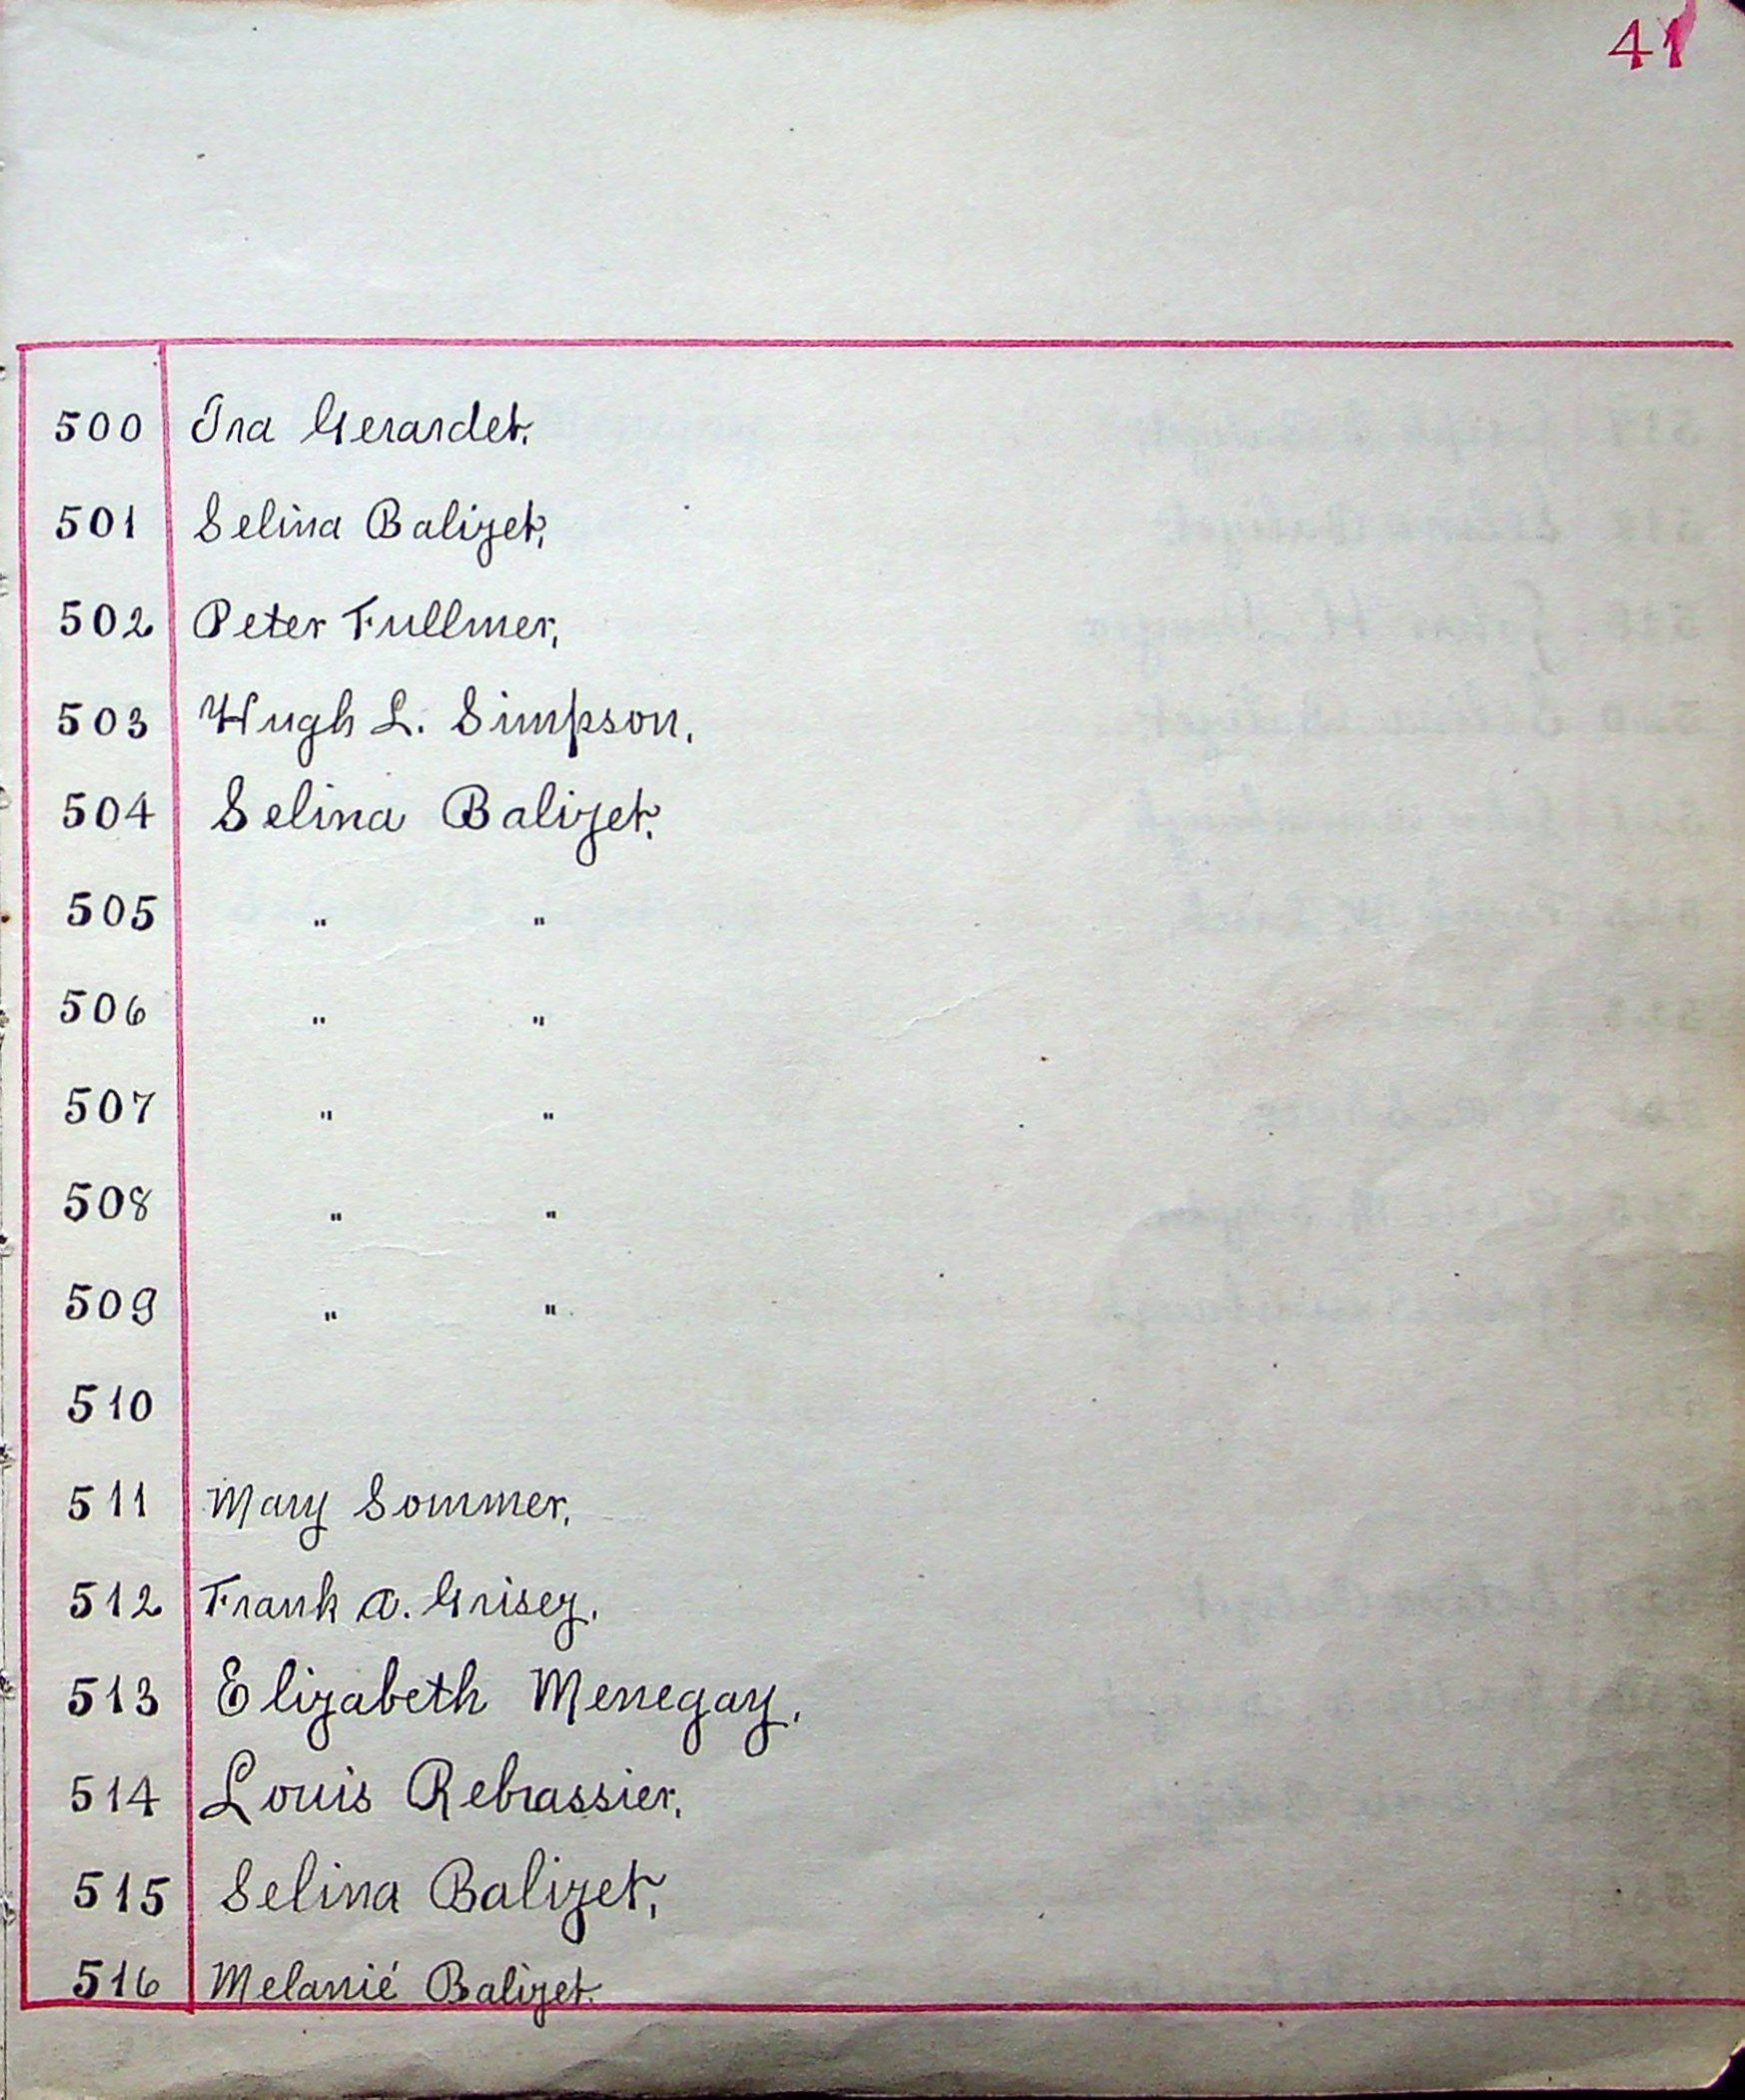 41
500 Ira Gerardet.
501 Selina Balizet,
502 Peter Fullmer,
503 Hugh L. Simpson.
504 Selina Balizet.
505 " "
506 " "
507 " "
508 " "
509 " "
510
511 Mary Sommer,
512 Frank A. Grisez.
513 Elizabeth Menegay.
514 Louis Rebrassier,
515 Selina Balizet,
516 Melanié Balizet.